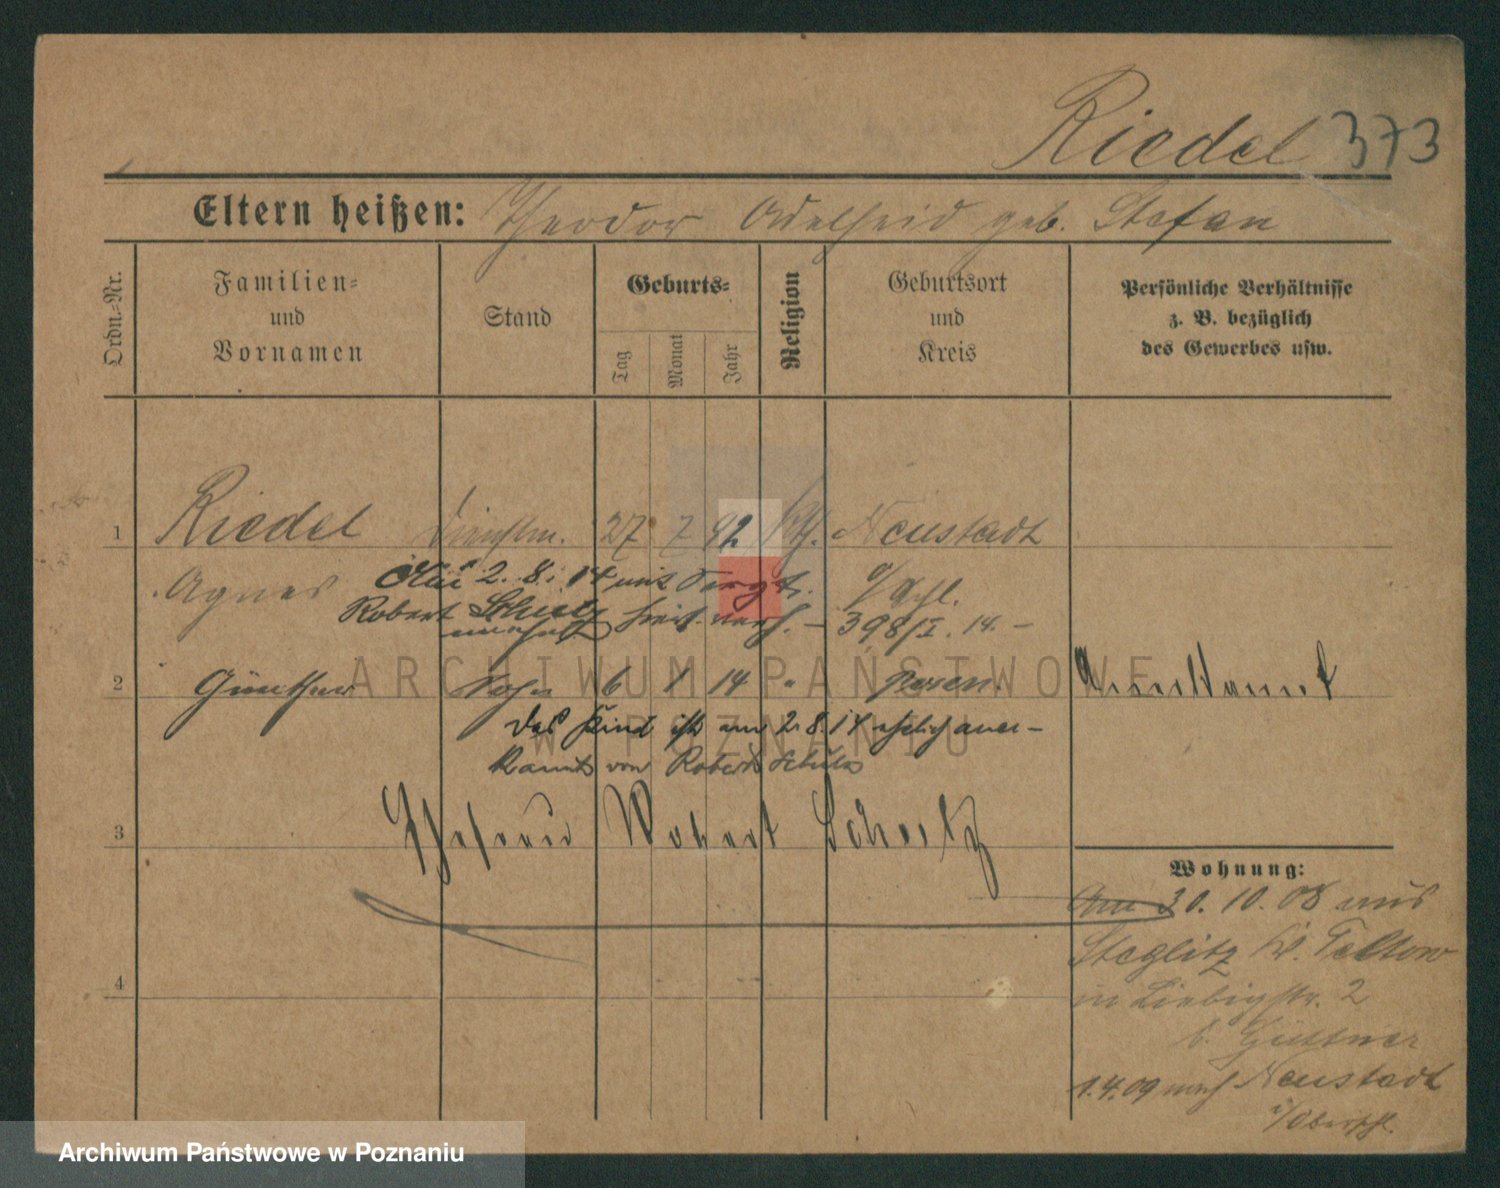 Riedel 373
Eltern heißen: Theodor Adelheid geb. Stefan
Ordn.-Nr.
Familien-
und
Vornamen
Stand
Geburts-
Tag
Monat
Jahr
Religion
Geburtsort
und
Kreis
Persönliche Verhältnisse
z. B. bezüglich
des Gewerbes usw.
1 Riedel Dienstm. 27 7 92 kth. Neustadt
Agnes 2. 8. 14 mit
o/Schl.
Robert Schultz 398/I. 14. –
2 Günther Sohn 6 1 14 " Posen.
Das Kind ist am 2. 8. 14 ehelich aner-
kannt von Robert Schulz
3 Ehefrau Robert Schultz
4
Wohnung:
Am 30. 10. 08 aus
Steglitz Kr. Teltow
in Liebigstr. 2
b. Güttner
1. 4. 09 nach Neustadt
i/Oberschl.
ARCHIWUM PAŃSTWOWE
W POZNANIU
Archiwum Państwowe w Poznaniu